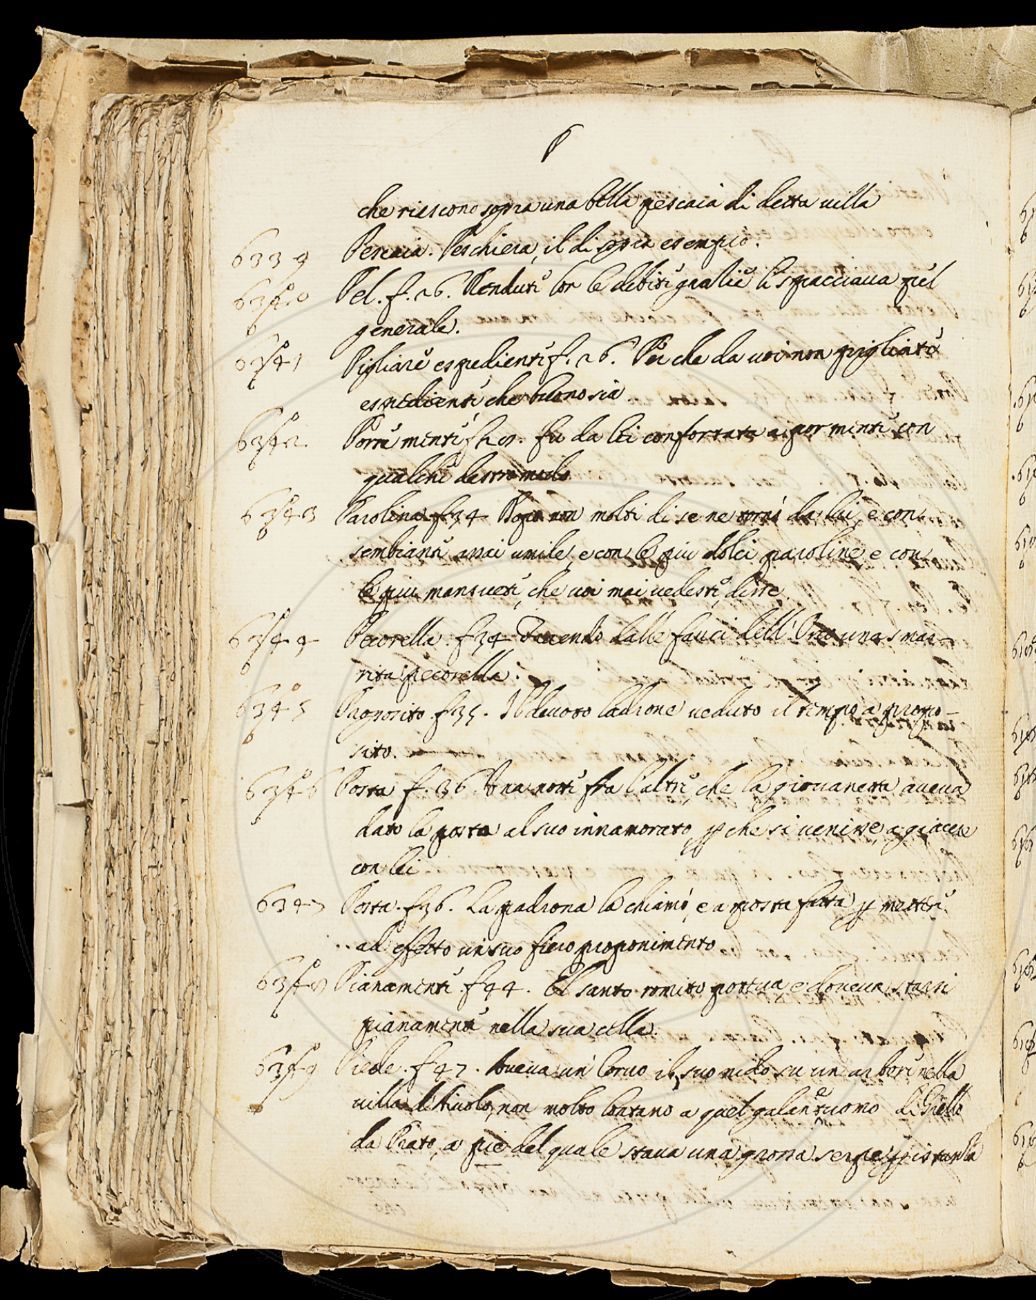 P
che riescono sopra una bella pescaia di detta villa
6339 Pescaia. Peschiera, il di sopra esempio.
6340 Pel. f. 26. Venduti le debiti spacciava pel
generale.
6341 Pigliare espedienti f. 26. Poi che da voi non pigliate
espedienti che buono sia
6342 Porre mente f. 29. fu da lei confortata a por mente con
qualche destro modo
6343 Parolina f 34 Dopo non molti dì se ne tornò da lui, e con
sembiante assai umile, e con le piu dolci paroline e con
le piu mansuete, che voi mai vedeste, disse
6344 Pecorella. f 34 Traendo dalle fauci dell'Orso una smar-
rita pecorella.
6345 Proposito. f 35. Il devoto ladrone veduto il tempo a propo-
sito.
6346 Posta f. 36 Una notte fra l'altre, che la giovanetta aveva
dato la posta al suo innamorato, p che si venisse a giacere
con lei
6347 Posta. f 36. La padrona la chiamò, e a posta fatta p mettere
ad effetto un suo fiero proponimento.
6348 Pianamente f 44. El santo romito poteva e doveva starsi
pianamente nella sua cella.
6349 Piede. f 47. Aveva un Corvo il suo nido su un arbore nella
villa non molto lontano a quel galantuomo di
da Prato, a piè del quale stava una grossa serpe